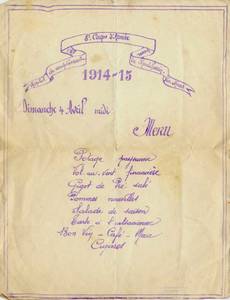 8e Corps d'Armée
1914-15
Dimanche 4 Avril midi
Menu
Potage paysanne
Vol au vent financière
Gigot de Pré salé
Pommes nouvelles
Salade de saison
Tarte à l'alsacienne
Bon Vin - Café - Moca